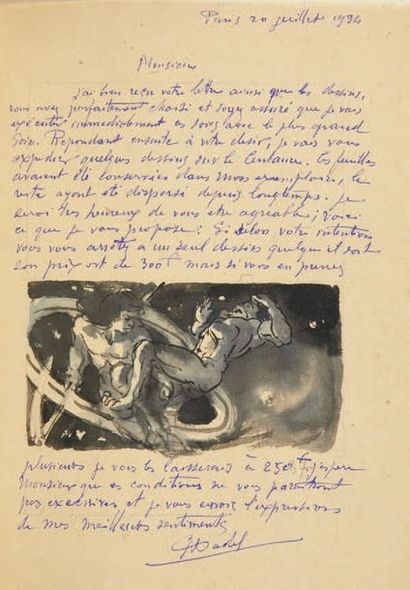 Paris 20 juillet 1934
Monsieur
j'ai bien reçu votre lettre ainsi que les dessins,
vous avez parfaitement choisi et soyez assuré que je vais
exécuter immédiatement ces avec le plus grand
soin. Répondant ensuite à votre désir, je vais vous
expédier quelques dessins sur le Centaure. Ces feuilles
avaient été conservées dans mon exemplaire, le
reste ayant été dispersé depuis longtemps. je
serai très heureux de vous être agréable; Voici
ce que je vous propose: Si selon votre intention
vous vous arrêtez a un seul dessins quelqu'il soit
son prix est de 300f mais si vous en prenez
plusieurs je vous les laisserais à 250f j'espère
Monsieur que ces conditions ne vous paraîtront
pas excessives, et je vous envoie l'expressions
de mes meilleurs sentiments,